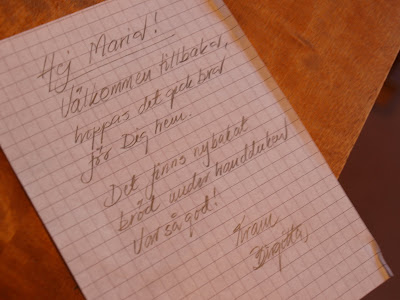 Hej Maria!
Välkommen tillbaka,
hoppas det gick bra
för Dig hem.
Det finns nybakat
bröd under handduken
Var så god!
Kram
Birgitta,